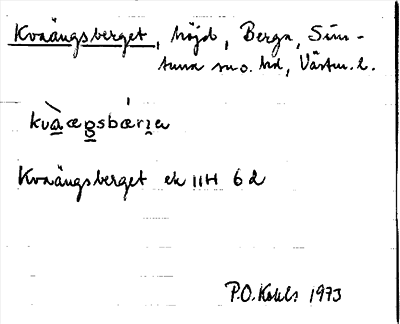 Kvaängsberget, höjd, Berga, Sim-
tuna sn o. hd, Västm. l.
kvàægsbæri̯a
Kvaängsberget ek 11H 6d
P.O. 1973